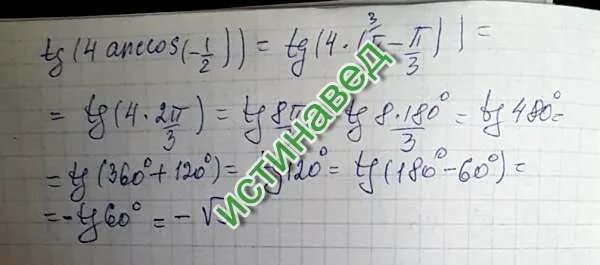 tg(4 arccos(-1/2)) = tg(4·(π - π/3)) =
= tg(4·2π/3) = tg 8π/3 = tg 8·180°/3 = tg 480° =
= tg(360° + 120°) = tg 120° = tg(180° - 60°) =
= -tg 60° = -√
истинавед